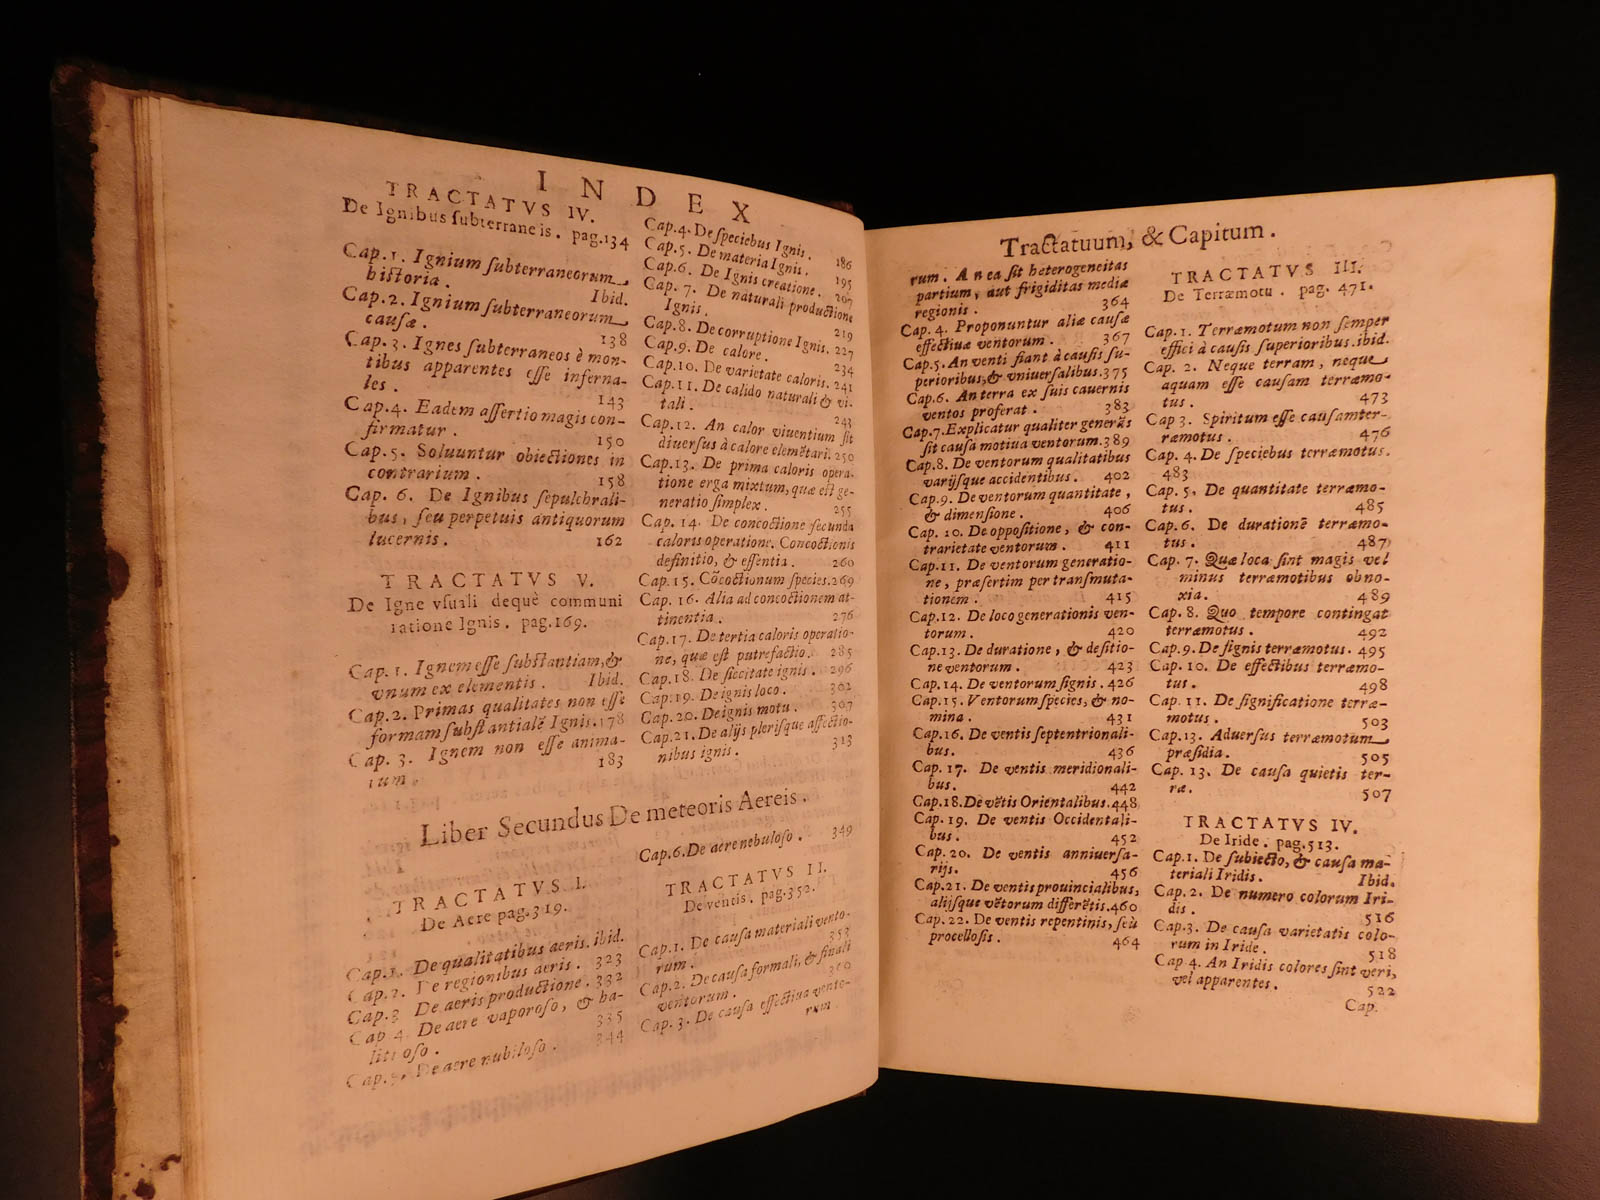 INDEX
TRACTATVS IV.
De Ignibus subterraneis. pag.134
Cap.1. Ignium subterraneorum
historia. Ibid.
Cap.2. Ignium subterraneorum
causæ. 138
Cap.3. Ignes subterraneos è mon-
tibus apparentes esse inferna-
les. 143
Cap.4. Eadem assertio magis con-
firmatur. 150
Cap.5. Soluuntur obiectiones in
contrarium. 158
Cap. 6. De Ignibus sepulchrali-
bus, seu perpetuis antiquorum
lucernis. 162
TRACTATVS V.
De Igne vsuali dequè communi
ratione Ignis. pag.169.
Cap.1. Ignem esse substantiam, &
vnum ex elementis. Ibid.
Cap.2. Primas qualitates non esse
formam substantialē Ignis. 178
Cap. 3. Ignem non esse anima-
tum. 183
Cap.4. De speciebus Ignis. 186
Cap.5. De materia Ignis. 195
Cap.6. De Ignis creatione. 207
Cap. 7. De naturali productione
Ignis. 219
Cap.8. De corruptione Ignis. 227
Cap.9. De calore. 234
Cap.10. De varietate caloris. 241
Cap.11. De calido naturali & vi-
tali. 243
Cap.12. An calor viuentium sit
diuersus à calore elemētari. 250
Cap.13. De prima caloris opera-
tione erga mixtum, quæ est ge-
neratio simplex. 255
Cap. 14. De concoctione secunda
caloris operatione. Concoctionis
definitio, & essentia. 260
Cap.15. Cōcoctionum species. 269
Cap.16. Alia ad concoctionem at-
tinentia. 276
Cap.17. De tertia caloris operatio-
ne, quæ est putrefactio. 285
Cap.18. De siccitate ignis. 296
Cap.19. De ignis loco. 302
Cap.20. De ignis motu. 307
Cap.21. De alijs plerisque affectio-
nibus ignis. 313
Liber Secundus De meteoris Aereis.
TRACTATVS I.
De Aere pag.319.
Cap.1. De qualitatibus aeris. ibid.
Cap.2. De regionibus aeris. 323
Cap.3 De aeris productione. 332
Cap 4. De aere vaporoso, & ha-
lituoso. 335
Cap.5. De aere nubiloso. 344
Cap.6. De aere nebuloso. 349
TRACTATVS II.
De ventis. pag.352.
Cap.1. De causa materiali vento-
rum. 353
Cap.2. De causa formali, & finali
ventorum. 360
Cap. 3. De causa effectiua vento-
rum.
Tractatuum, & Capitum.
rum. An ea sit heterogeneitas
partium, aut frigiditas mediæ
regionis. 364
Cap. 4. Proponuntur aliæ causæ
effectiuæ ventorum. 367
Cap.5. An venti fiant à causis su-
perioribus, & vniuersalibus. 375
Cap.6. An terra ex suis cauernis
ventos proferat. 383
Cap.7. Explicatur qualiter generūs
sit causa motiua ventorum. 389
Cap.8. De ventorum qualitatibus
varijsque accidentibus. 402
Cap.9. De ventorum quantitate,
& dimensione. 406
Cap. 10. De oppositione, & con-
trarietate ventorum. 411
Cap.11. De ventorum generatio-
ne, præsertim per transmuta-
tionem. 415
Cap.12. De loco generationis ven-
torum. 420
Cap.13. De duratione, & desitio-
ne ventorum. 423
Cap.14. De ventorum signis. 426
Cap.15. Ventorum species, & no-
mina. 431
Cap.16. De ventis septentrionali-
bus. 436
Cap. 17. De ventis meridionali-
bus. 442
Cap.18. De vētis Orientalibus. 448
Cap. 19. De ventis Occidentali-
bus. 452
Cap. 20. De ventis anniuersa-
rijs. 456
Cap.21. De ventis prouincialibus,
alijsque vētorum differētis. 460
Cap. 22. De ventis repentinis, seù
procellosis. 464
TRACTATVS III.
De Terræmotu. pag. 471.
Cap.1. Terræmotum non semper
effici à causis superioribus. ibid.
Cap. 2. Neque terram, neque
aquam esse causam terræmo-
tus. 473
Cap 3. Spiritum esse causam ter-
ræmotus. 476
Cap. 4. De speciebus terræmotus.
483
Cap.5. De quantitate terræmo-
tus. 485
Cap.6. De durationē terræmo-
tus. 487
Cap. 7. Quæ loca sint magis vel
minus terræmotibus obno-
xia. 489
Cap. 8. Quo tempore contingat
terræmotus. 492
Cap.9. De signis terræmotus. 495
Cap.10. De effectibus terræmo-
tus. 498
Cap. 11. De significatione terræ-
motus. 503
Cap.13. Aduersus terræmotum
præsidia. 505
Cap. 13. De causa quietis ter-
ræ. 507
TRACTATVS IV.
De Iride. pag.513.
Cap.1. De subiecto, & causa ma-
teriali Iridis. Ibid.
Cap.2. De numero colorum Iri-
dis. 516
Cap.3. De causa varietatis colo-
rum in Iride. 518
Cap 4. An Iridis colores sint veri,
vel apparentes. 522
Cap.